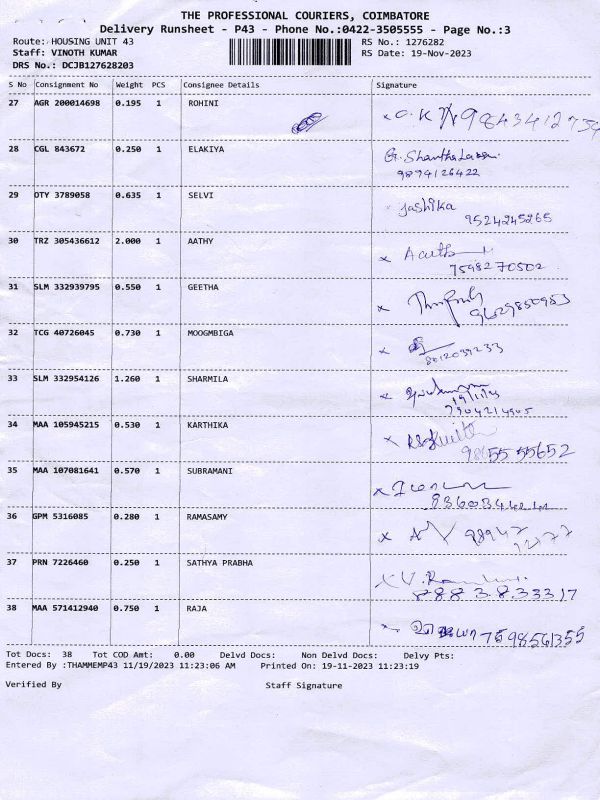 THE PROFESSIONAL COURIERS, COIMBATORE
Delivery Runsheet - P43 - Phone No.:0422-3505555 - Page No.:3
Route: HOUSING UNIT 43 RS No.: 1276282
Staff: VINOTH KUMAR RS Date: 19-Nov-2023
DRS No.: DCJB127628203
S No Consignment No Weight PCS Consignee Details Signature
27 AGR 200014698 0.195 1 ROHINI
28 CGL 843672 0.250 1 ELAKIYA
9894126422
29 OTY 3789058 0.635 1 SELVI Jashika
9524245265
30 TRZ 305436612 2.000 1 AATHY x
7598270502
31 SLM 332939795 0.550 1 GEETHA x
9629850953
32 TCG 40726045 0.730 1 MOOGMBIGA x
8012039233
33 SLM 332954126 1.260 1 SHARMILA x
19/11/23
34 MAA 105945215 0.530 1 KARTHIKA x
9865555652
35 MAA 107081641 0.570 1 SUBRAMANI x
36 GPM 5316085 0.280 1 RAMASAMY x
37 PRN 7226460 0.250 1 SATHYA PRABHA x
38 MAA 571412940 0.750 1 RAJA x 7598561355
Tot Docs: 38 Tot COD Amt: 0.00 Delvd Docs: Non Delvd Docs: Delvy Pts:
Entered By :THAMMEMP43 11/19/2023 11:23:06 AM Printed On: 19-11-2023 11:23:19
Verified By Staff Signature